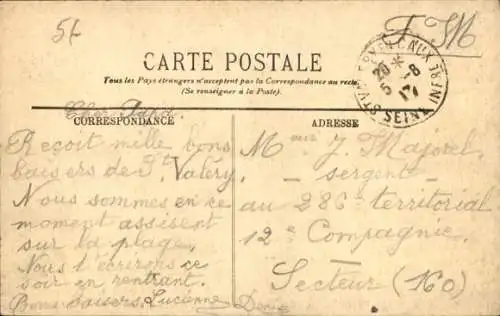 5f
F M
CARTE POSTALE
Tous les Pays étrangers n'acceptent pas la Correspondance au recto
(Se renseigner à la Poste).
ST VALERY EN CAUX SEINE INFRE
20 *
5 -8
17
Cher Papa
CORRESPONDANCE
Reçoit mille bons
baisers de St Valéry
Nous sommes en ce
moment assisent
sur la plage,
Nous t'écrirons ce
soir en rentrant.
Bons baisers, Lucienne Denise
ADRESSE
Mr J. Majorel
sergent
au 286e territorial
12e Compagnie.
Secteur (160)